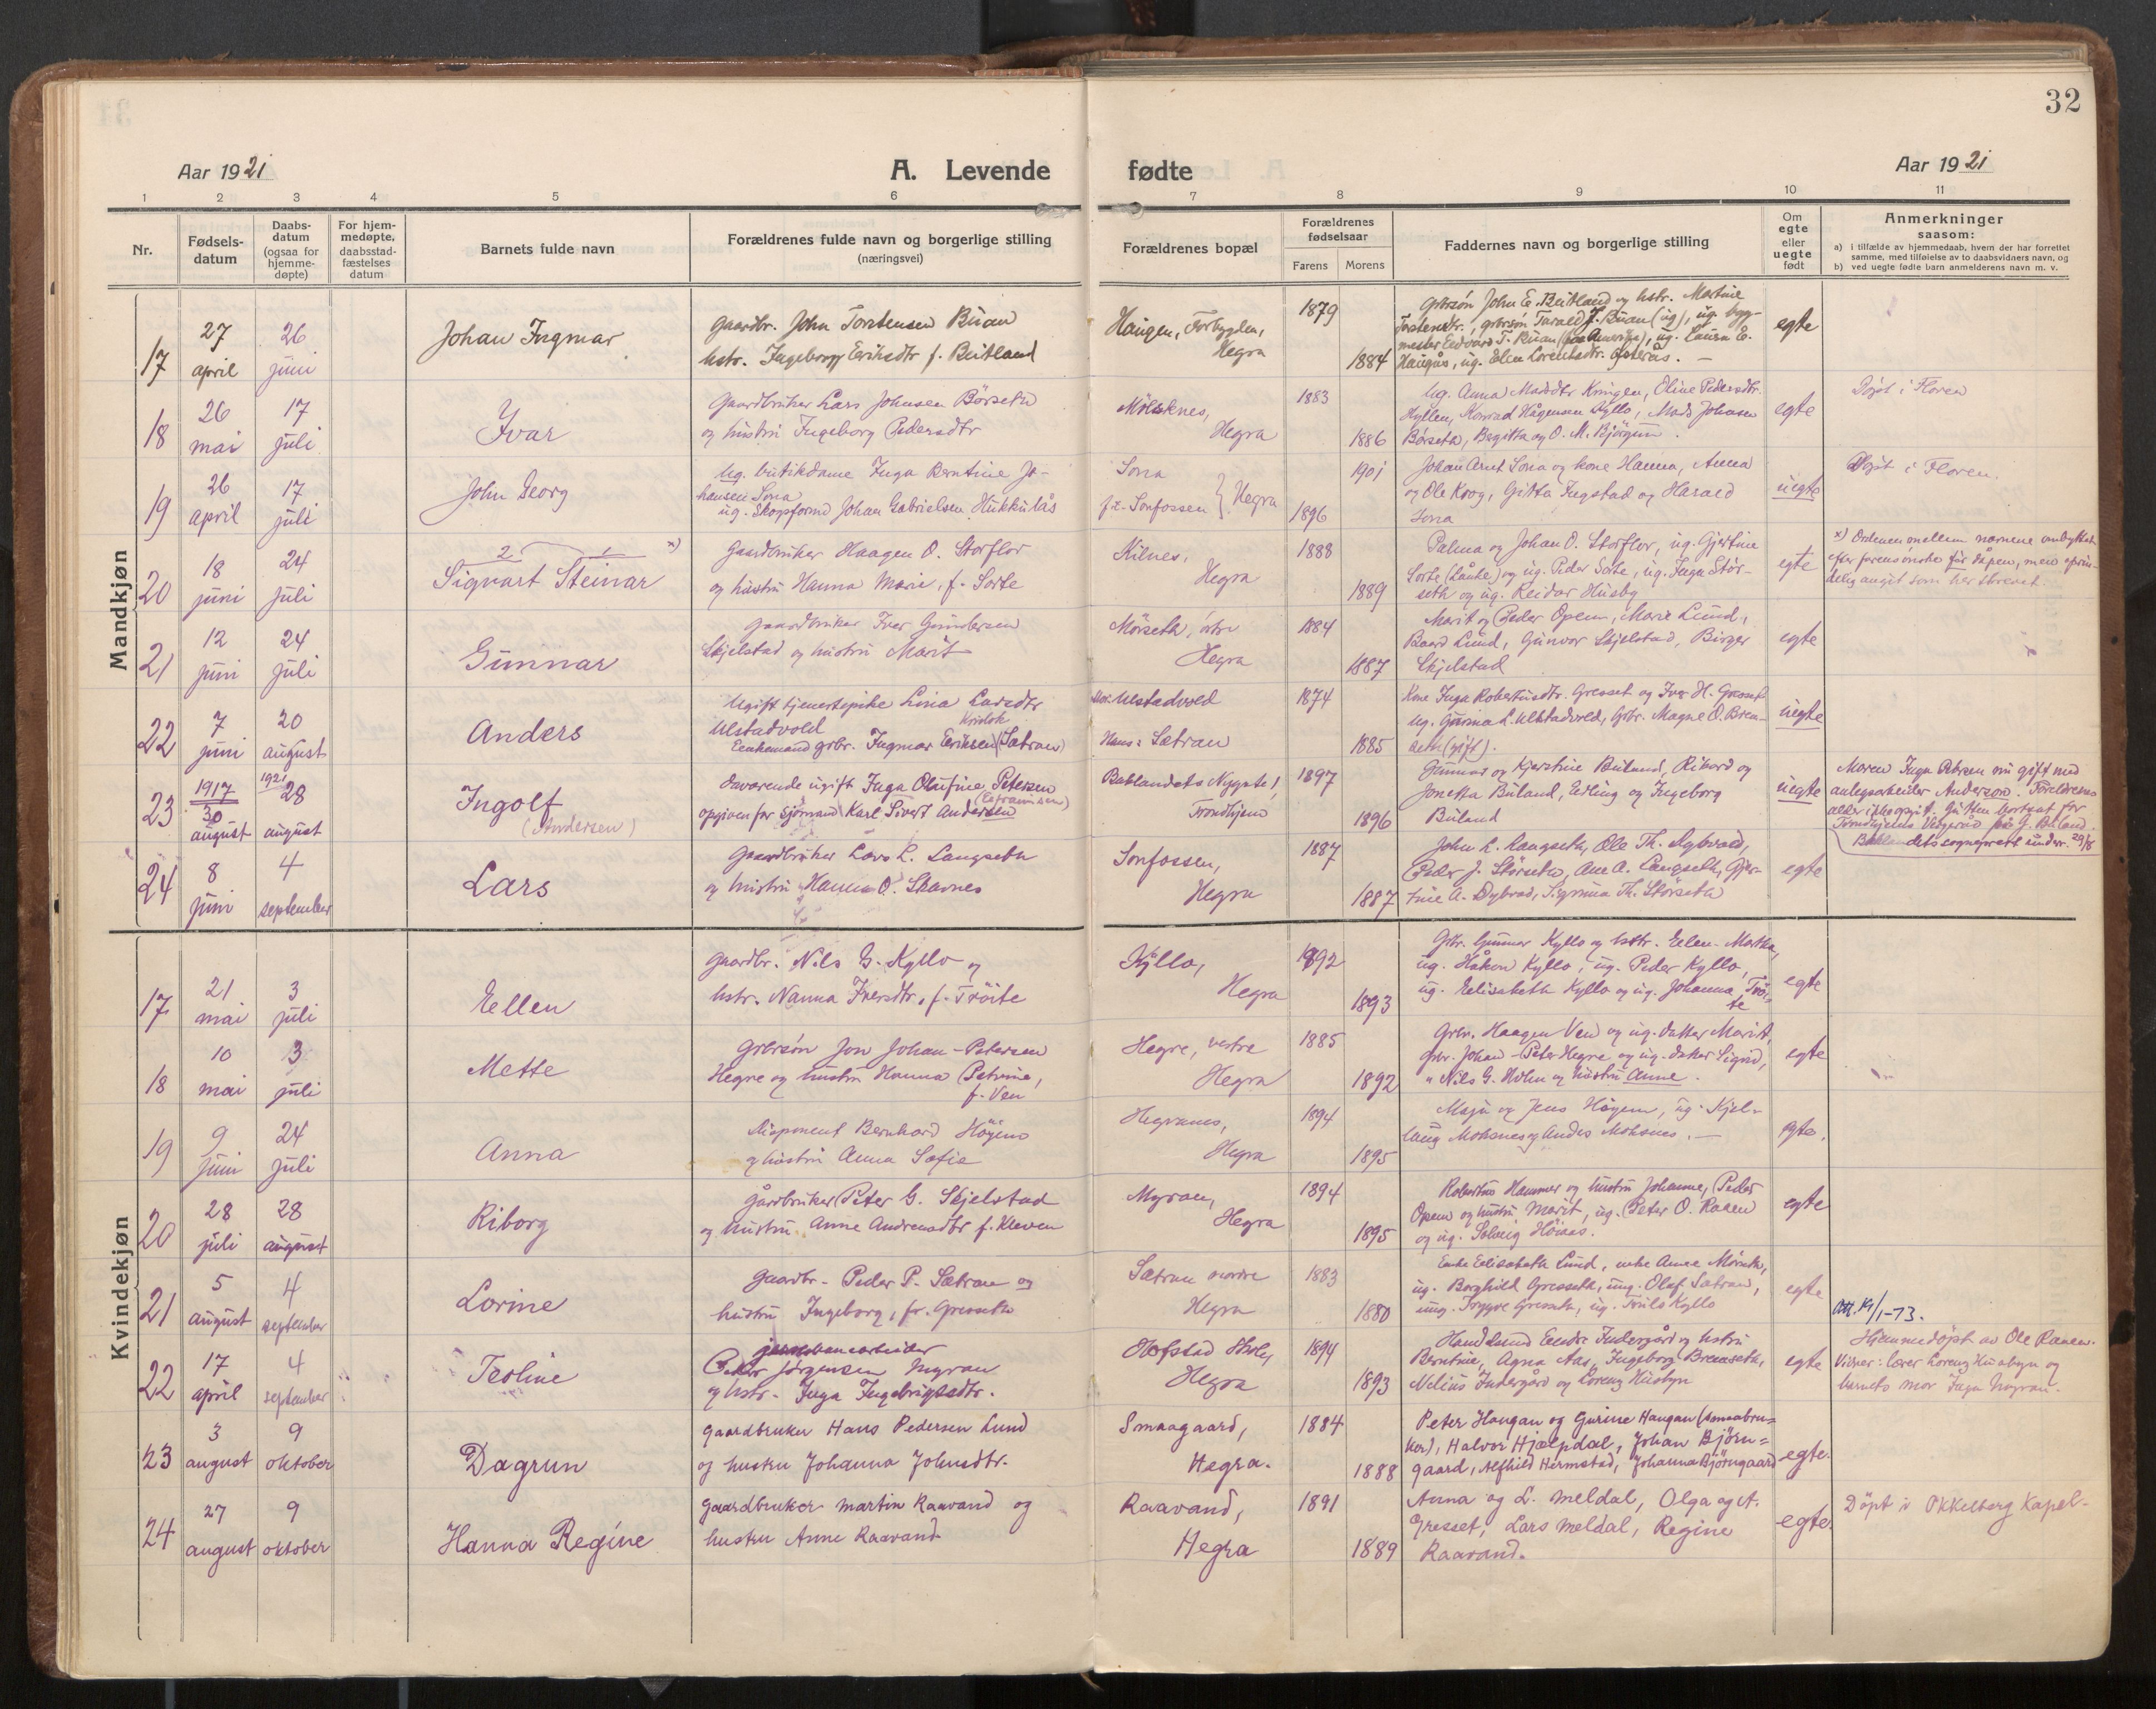 32
Aar 1921
A. Levende
fødte
Aar 1921
1 2 3 4 5 6 7 8 9 10 11
Nr.
Fødsels-
datum
Daabs-
datum
(ogsaa for
hjemme-
døpte)
For hjem-
medøpte,
daabsstad-
fæstelses
datum
Barnets fulde navn
Forældrenes fulde navn og borgerlige stilling
(næringsvei)
Forældrenes bopæl
Forældrenes
fødselsaar
Farens Morens
Faddernes navn og borgerlige stilling
Om
egte
eller
uegte
født
Anmerkninger
saasom:
a) i tilfælde av hjemmedaab, hvem der har forrettet
samme, med tilføielse av to daabsvidners navn, og
b) ved uegte fødte barn anmelderens navn m. v.
Mandkjøn
17
27
april
26
juni
Johan Ingmar
Gaardbr. John Torstensen Buan
hstr. Ingeborg Eriksdtr f. Beitland
Haugen, Forbygden,
Hegra
1879
1884
Grbrsön John E. Beitland og hstr. Martine
Torstensdtr., grbrsön Tarald J. Buan (ug), ug. byg-
mester Edvard T. Buan (fra Amerika), ug. Laura E.
Haugås, ug. Elen Lorentsdtr. Österås. —
egte
18
26
mai
17
juli
Ivar
Gaardbruker Lars Johnsen Börseth
og hustru Ingeborg Pedersdtr
Mölsknes,
Hegra
1883
1886
Ug. Anna Madsdtr Kringen, Oline Pedersdtr.
Hyllen, Konrad Hågensen Kyllo, Mads Johnsen
Börseth, Bergitta og O. M. Björgum.
egte
Döpt i Floren
19
26
april
17
juli
John Georg
Ug. butikdame Inga Berntine Jo-
hansen Sona
ug. Skopformd Johan Gabrielsen Hukkulås
Sona
f.x. Sonfossen } Hegra
1901
1896
Johan Arnt Sona og kone Hanna, Anna
og Ole Krog, Gitta Ingstad og Harald
Sona
uegte
Döpt i Floren.
20
18
juni
24
juli
2 1 x)
Sigvart Steinar
Gaardbruker Haagen O. Storflor
og hustru Hanna Marie, f. Sorte
Kilnes,
Hegra
1888
1889
Palma og Johan O. Storflor, ug. Gjertine
Sorte (Lånke) og ug. Peder Sorte, ug. Inga Stör-
seth og ug. Reidar Husby
egte
x) Ordenen mellem navnene ombyttet
efter farens önske för dåpen, men oprin-
delig anget som her skrevet.
21
12
juni
24
juli
Gunnar
Gaardbruker Iver Gundersen
Skjelstad og hustru Marit
Mörseth, östre
Hegra
1884
1887
Marit og Peder Opem, Marie Lund,
Baard Lund, Gunvor Skjelstad, Birger
Skjelstad
egte
22
7
juni
20
august
Anders
Ugift tjenestepike Lina Larsdtr
Ulstadvold
Enkemand grbr. Ingmar Eriksen (Sætran)
Ulstadvold
Hans: Sætran
1874
1885
Kone Inga Robertusdtr. Gresset og Iver H. Gresset
ug. Gurina L. Ulstadvold, Grbr. Magne O. Brem-
seth (gift).
uegte
23
1917
30
august
1921
28
august
Ingolf
(Andersen)
Daværende ugift Inga Olufine Petersen
(Efraimsen)
opgiven far sjömand Karl Sivert Andersen
Baklandets Nygate 1,
Trondhjem
1897
1896
Gunnar og Kjerstine Buland, Rikard og
Jonetta Buland, Edling og Ingeborg
Buland
uegte
Moren Inga Petersen nu gift med
anlegsarbeider Anderson. Foreldrenes
alder ikke opgit. Gutten bortsat for
Trondhjems Vergeråd hos G. Buland.
Baklandets sogneprest underr. 29/8
24
8
juni
4
september
Lars
Gaardbruker Lars L. Langseth
og hustru Hanna O. Skavnes
Sonfossen,
Hegra
1887
1887
John L. Langseth, Ole Th. Dybvad,
Peder J. Störseth, Ane A. Langseth, Gjer-
tine A. Dybvad, Sigrunn Th. Störseth
egte
Kvindekjøn
17
21
mai
3
juli
Ellen
Gaardbr. Nils G. Kyllo og
hstr. Nanna Iversdtr. f. Tröite
Kyllo,
Hegra
1892
1893
Grbr. Gunnar Kyllo og hstr. Ellen-Martha,
ug. Håkon Kyllo, ug. Peder Kyllo,
ug. Elisabeth Kyllo og ug. Johanna Tröi-
te
egte
18
10
mai
3
juli
Mette
Grbrsön Jon Johan-Petersen
Hegre og hustru Hanna Petrine,
f. Ven
Hegre, vestre
Hegra
1885
1892
Grbr. Haagen Ven og ug. datter Marit,
Grbr. Johan-Peter Hegre og ug. datter Sigrid,
" Nils G. Holm og hustru Anne.
egte
19
9
juni
24
juli
Anna
Disponent Bernhard Högem
og hustru Anna Sofie
Hegramo,
Hegra
1894
1895
Maja og Jens Högem, ug. Kjel-
laug Moksnes og Andes Moksnes. —
egte.
20
28
juli
28
august
Riborg
Gårdbruker Peter G. Skjelstad
og hustru Anne Andreasdtr f. Kleven
Myran,
Hegra
1894
1895
Robertus Hammer og hustru Johanne, Peder
Opem og hustru Marit, ug. Peter O. Raaen
og ug. Solveig Höiaas.
egte
21
5
august
4
september
Lorine
Gaardbr. Peder P. Sætran og
hustru Ingeborg, f. Gresseth
Sætran nordre
Hegra
1883
1880
Enke Elisabeth Lund, enke Anne Mörseth,
ug. Borghild Gresseth, ung. Olaf Sætran,
ung. Trygve Gresseth, ug. Truls Kyllo
egte
Att. 19/1-73.
22
17
april
4
september
Teoline
jernbanearbeider
Peder Jörgensen Myran
og hstr. Inga Ingebrigtsdtr.
Hofstad Skole,
Hegra
1894
1893
Handelsmd Endre Indergård og hstru
Berntine, Agna Aas, Ingeborg Bremseth,
Nelius Indergård og Lorens Husbyn
egte
Hjemmedöpt av Ole Raaen.
Vidner: lærer Lorens Husbyn og
barnets mor Inga Myran.
23
3
august
9
oktober
Dagrun
Gaardbruker Hans Pedersen Lund
og hustru Johanna Johnsdtr.
Smaagaard,
Hegra.
1884
1888
Peter Haugan og Gurine Haugan (smaabru=
ker), Halvor Hjelpdal, Johan Björn=
gaard, Alfhild Hermstad, Johanna Björngaard
egte.
24
27
august
9
oktober
Hanna Regine
Gaardbruker Martin Raavand og
hustru Anne Raavand
Raavand,
Hegra
1891
1889
Anna og L. Meldal, Olga og A.
Gresset, Lars Meldal, Regine
Raavand.
egte.
Döpt i Okkelberg Kapel.